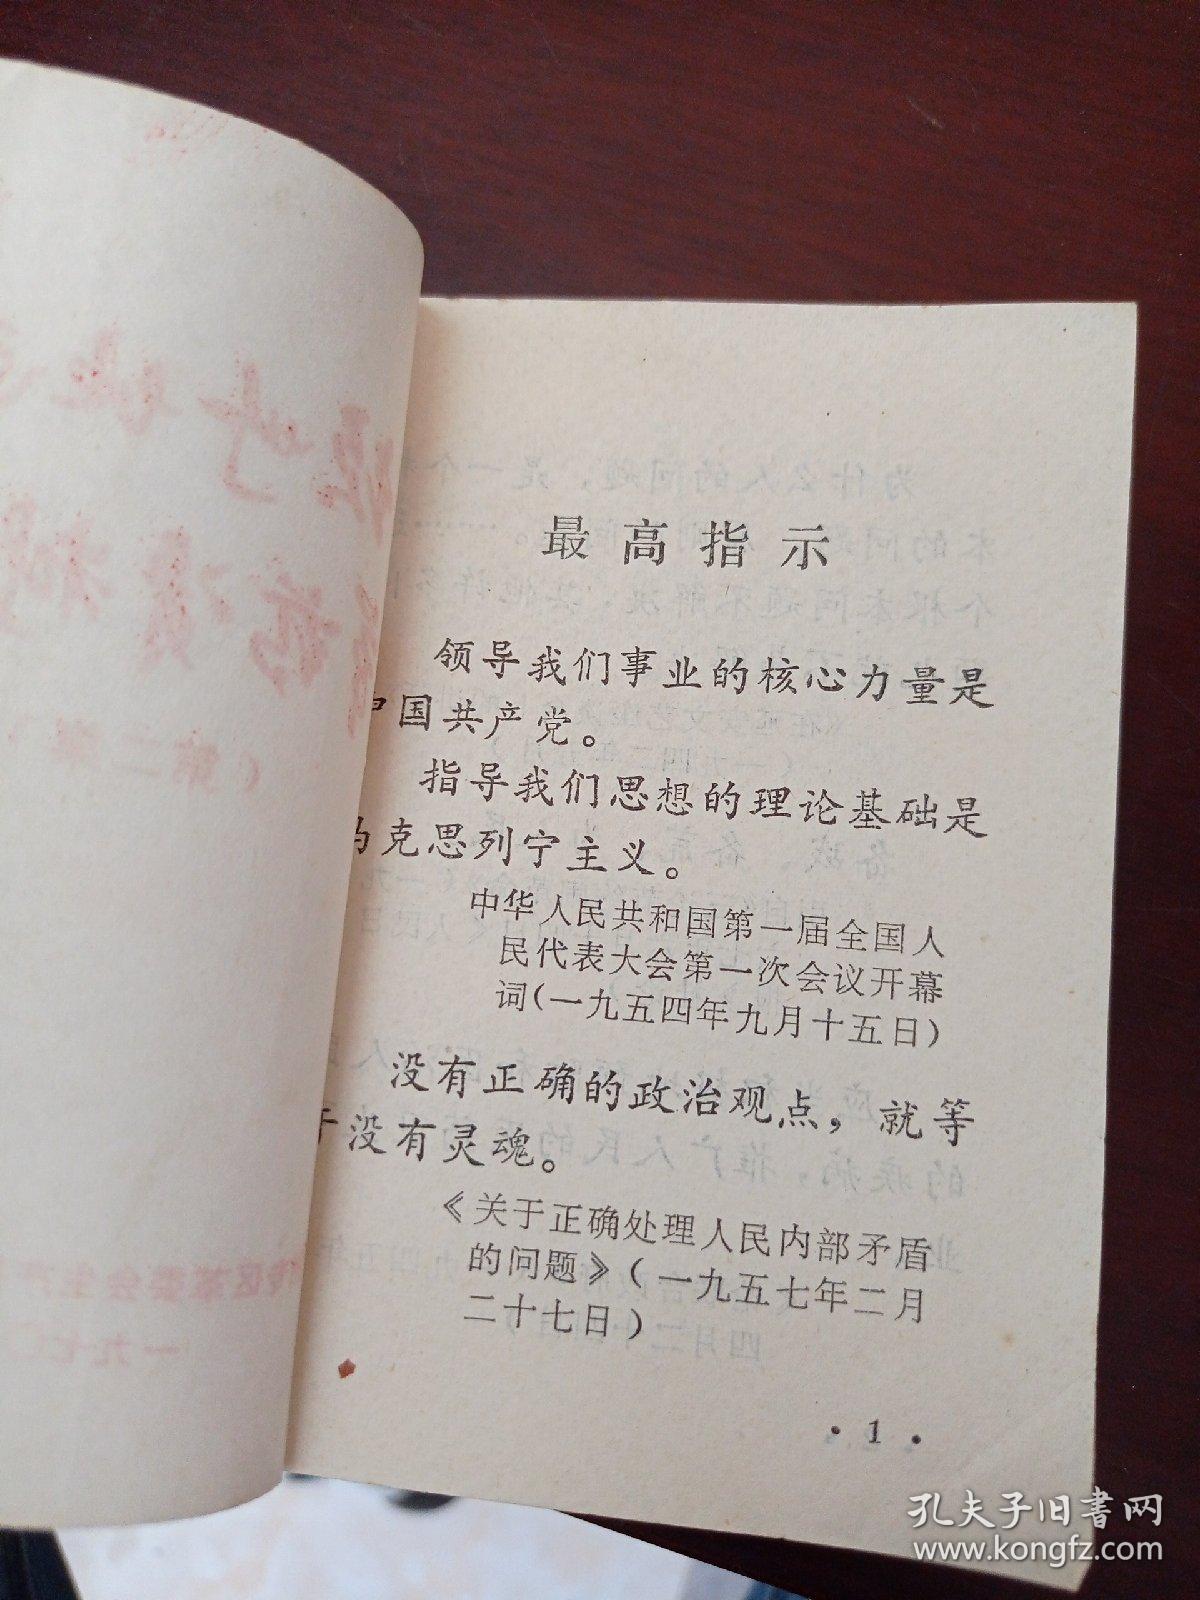 最高指示
领导我们事业的核心力量是
中国共产党。
指导我们思想的理论基础是
马克思列宁主义。
中华人民共和国第一届全国人
民代表大会第一次会议开幕
词(一九五四年九月十五日)
没有正确的政治观点，就等
于没有灵魂。
《关于正确处理人民内部矛盾
的问题》(一九五七年二月
二十七日)
·1·
孔夫子旧书网
www.kongfz.com